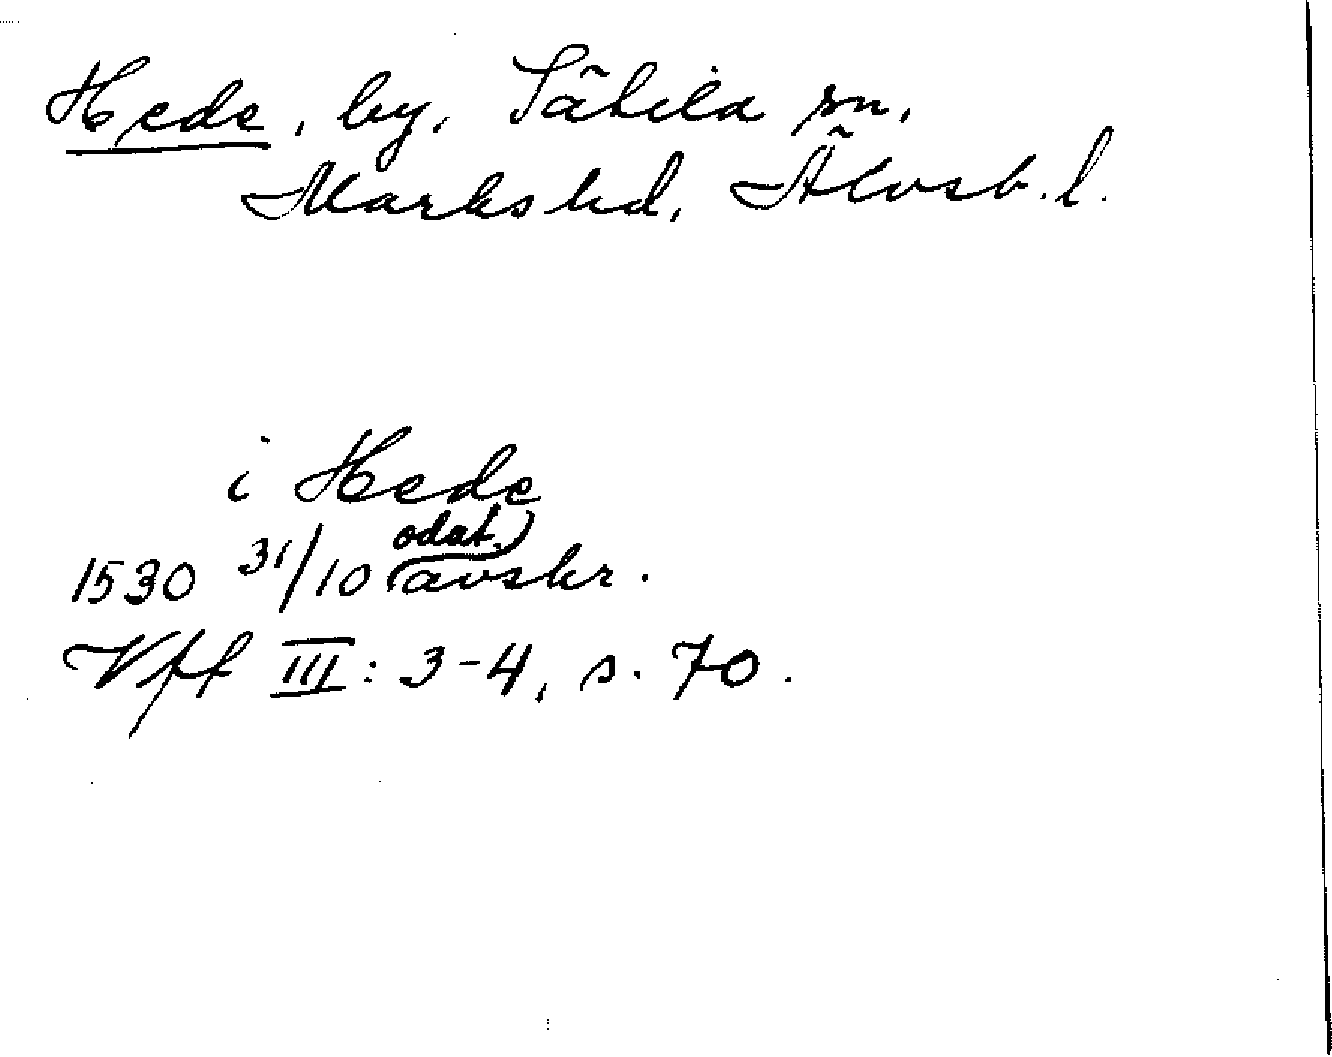 Hede, by, Sätila sn,
Marks hd, Älvsb. l.
i Hede
1530 31/10 (odat. avskr.)
Vff III: 3-4, s. 70.